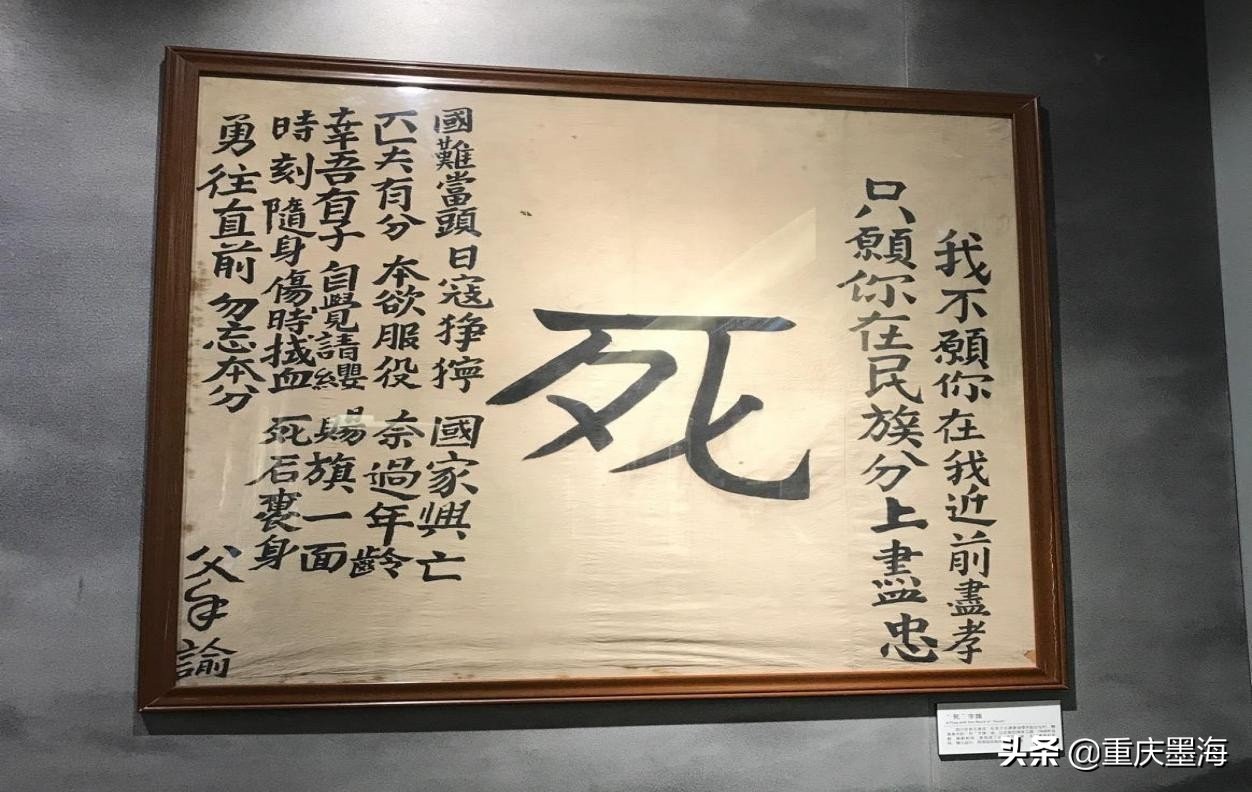 我不願你在我近前盡孝
只願你在民族分上盡忠
死
國難當頭 日寇猙獰 國家興亡
匹夫有分 本欲服役 奈過年齡
幸吾有子 自覺請纓 賜旗一面
時刻隨身 傷時拭血 死后裹身
勇往直前 勿忘本分
父手諭
“死”字旗
头条 @重庆墨海